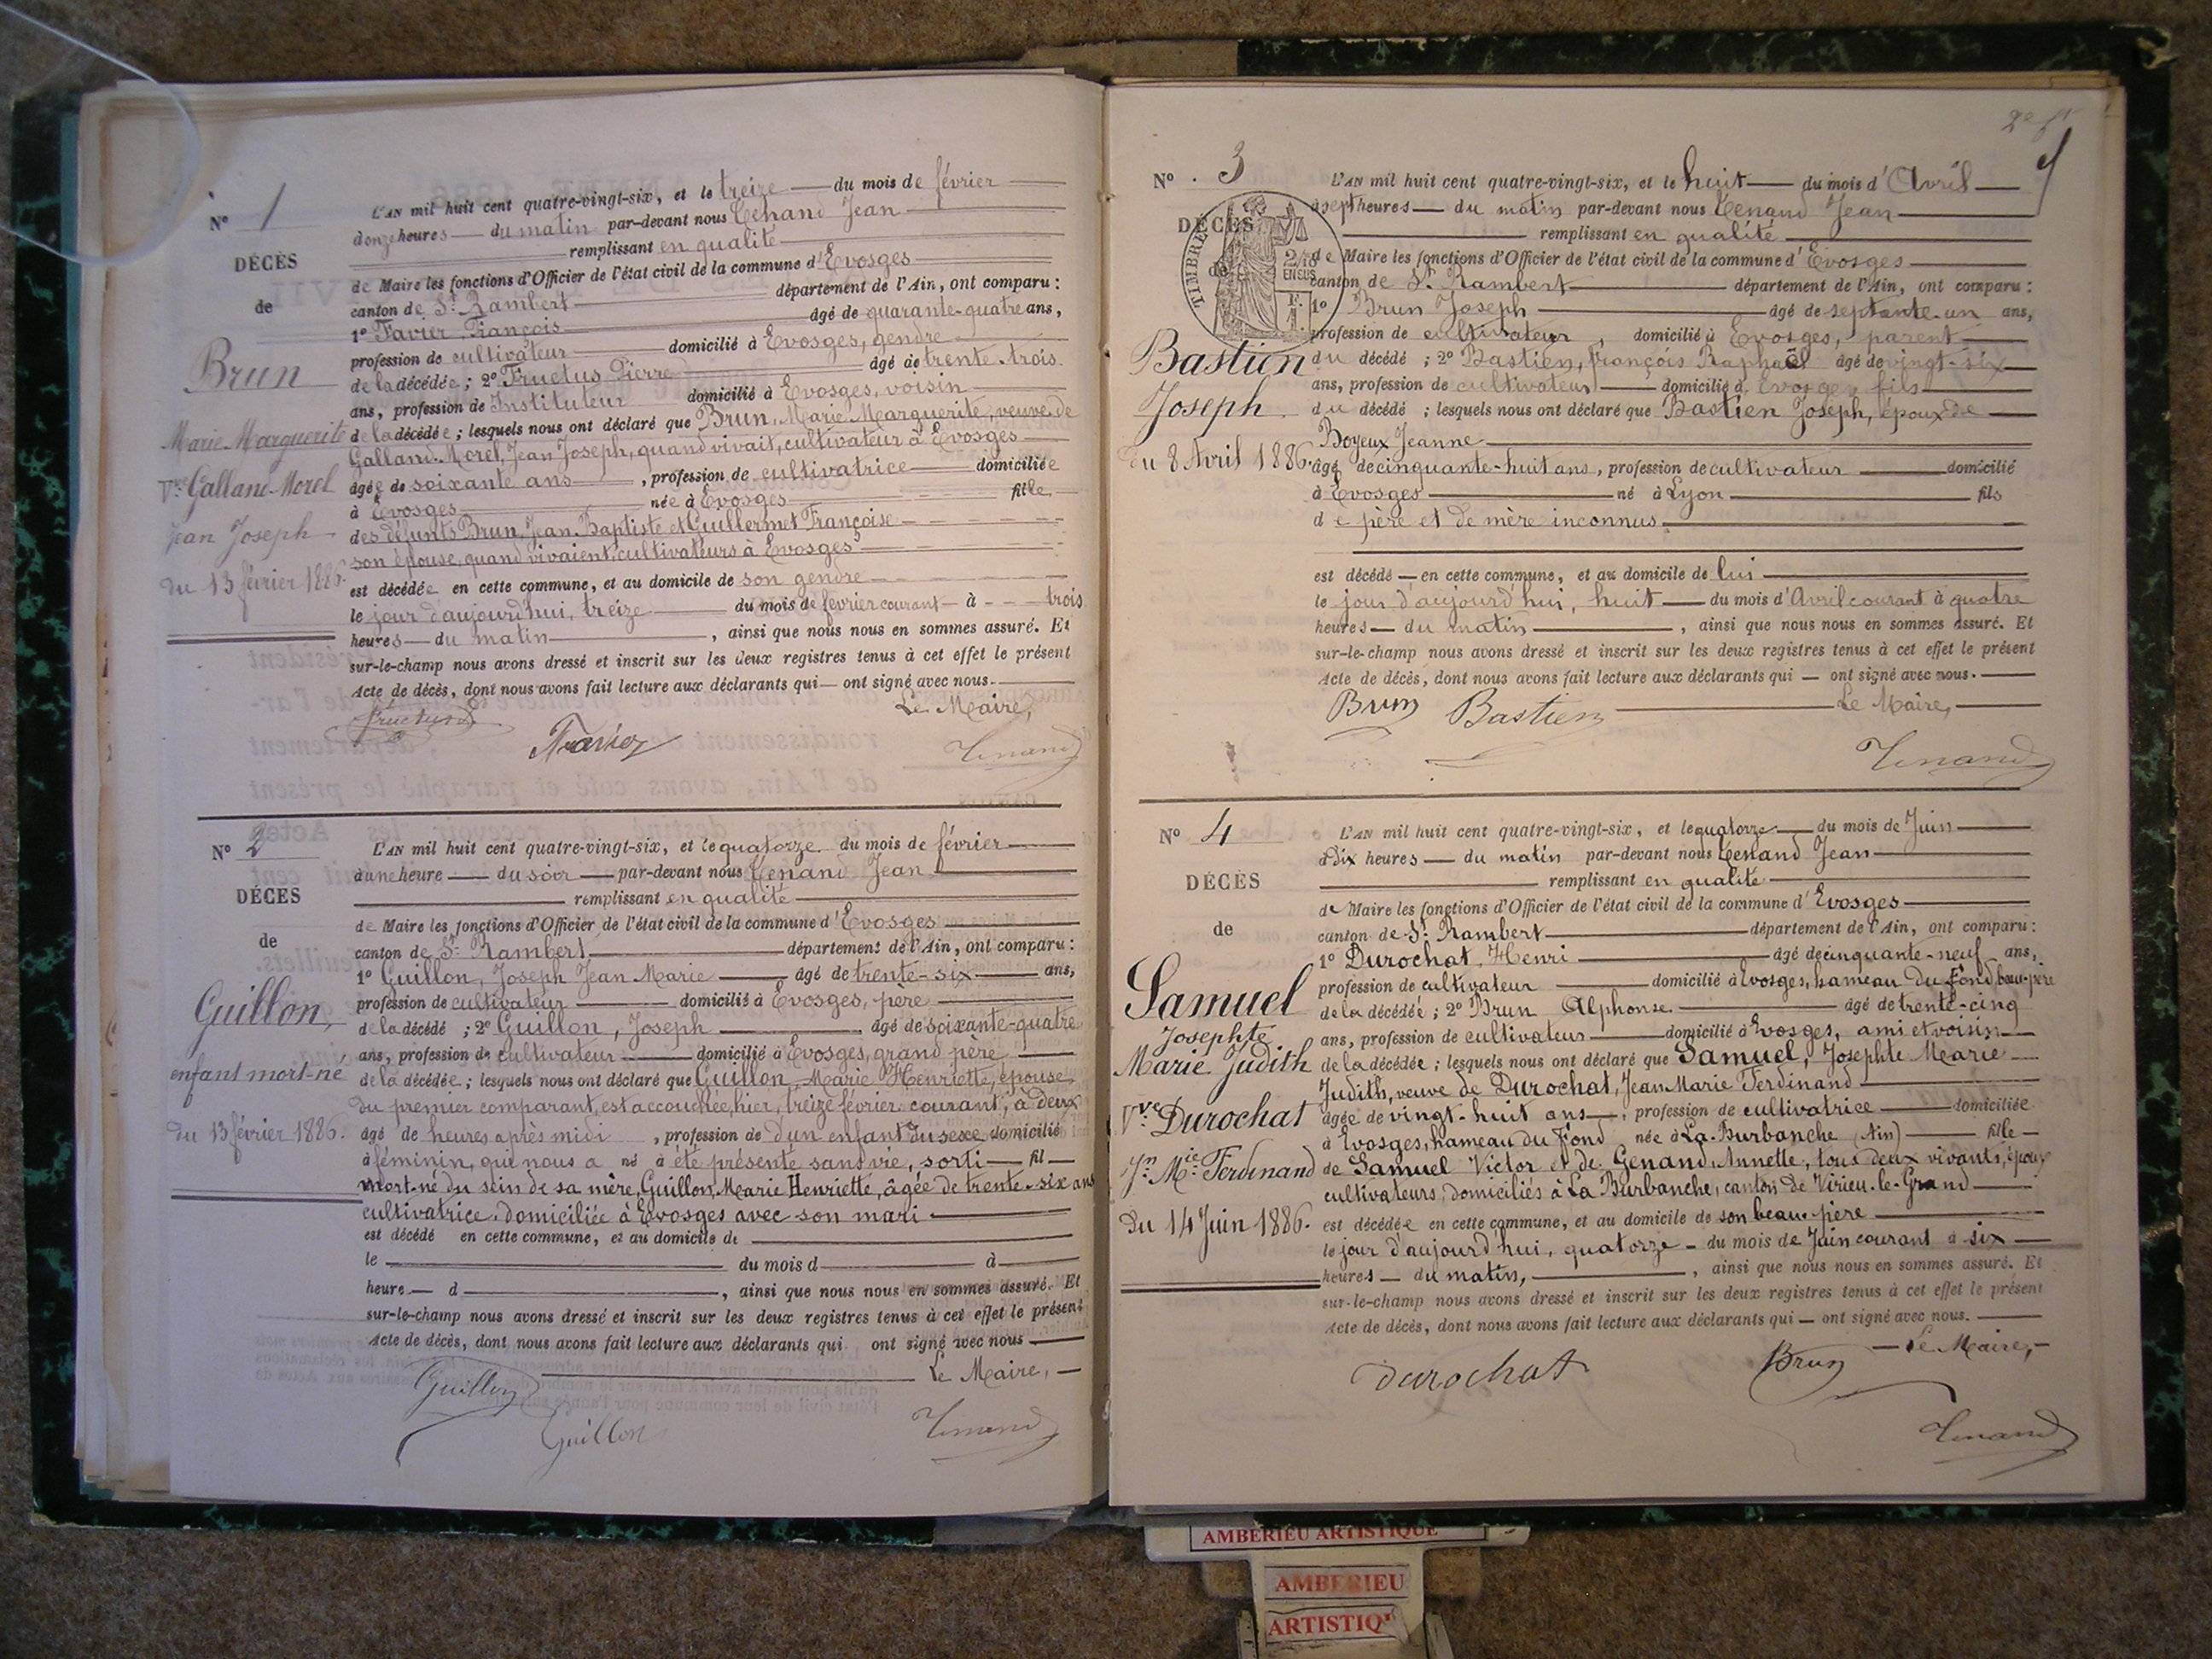 N° 1
DÉCÈS
de
Brun
Marie Marguerite
Vve Galland-Morel
Jean Joseph
du 13 février 1886.
L'AN mil huit cent quatre-vingt-six, et le treize du mois de février
à onze heures du matin par-devant nous Tenand Jean
remplissant en qualité
de Maire les fonctions d'Officier de l'état civil de la commune d'Evosges
canton de St. Rambert département de l'Ain, ont comparu :
1° Favier, François âgé de quarante-quatre ans,
profession de cultivateur domicilié à Evosges, gendre
de la décédée ; 2° Fructus Pierre âgé de trente-trois
ans, profession de Instituteur domicilié à Evosges, voisin
de la décédée ; lesquels nous ont déclaré que Brun, Marie Marguerite, veuve de
Galland-Morel, Jean Joseph, quand vivait, cultivateur à Evosges
âgée de soixante ans, profession de cultivatrice domiciliée
à Evosges née à Evosges fille
des défunts Brun, Jean Baptiste et Guillermet Françoise
son épouse, quand vivaient, cultivateurs à Evosges
est décédée en cette commune, et au domicile de son gendre
le jour d'aujourd'hui, treize du mois de février courant à trois
heures du matin, ainsi que nous nous en sommes assuré. Et
sur-le-champ nous avons dressé et inscrit sur les deux registres tenus à cet effet le présent
Acte de décès, dont nous avons fait lecture aux déclarants qui ont signé avec nous.
Le Maire,
Fructus
Favier
Tenand
N° 2
DÉCES
de
Guillon,
enfant mort-né
du 13 février 1886.
L'AN mil huit cent quatre-vingt-six, et le quatorze du mois de février
à une heure du soir par-devant nous Tenand Jean
remplissant en qualité
de Maire les fonctions d'Officier de l'état civil de la commune d'Evosges
canton de St. Rambert département de l'Ain, ont comparu :
1° Guillon, Joseph Jean Marie âgé de trente-six ans,
profession de cultivateur domicilié à Evosges, père
de la décédé ; 2° Guillon, Joseph âgé de soixante-quatre
ans, profession de cultivateur domicilié à Evosges, grand père
de la décédée ; lesquels nous ont déclaré que Guillon, Marie Henriette, épouse
du premier comparant, est accouchée, hier, treize février courant, à deux
âgé de heures après midi, profession de d'un enfant du sexe domicilié
à féminin, qui nous a né à été présenté sans vie, sorti fil
mort-né du sein de sa mère, Guillon, Marie Henriette, âgée de trente-six ans
cultivatrice, domiciliée à Evosges avec son mari
est décédé en cette commune, et au domicile de
le du mois d à
heure d, ainsi que nous nous en sommes assuré. Et
sur-le-champ nous avons dressé et inscrit sur les deux registres tenus à cet effet le présent
Acte de décès, dont nous avons fait lecture aux déclarants qui ont signé avec nous
Le Maire,
Guillon
Guillon
Tenand
N° 3
DÉCÈS
de
TIMBRE
2/10 EN SUS
Bastien
Joseph
du 8 Avril 1886.
L'AN mil huit cent quatre-vingt-six, et le huit du mois d'Avril
à sept heures du matin par-devant nous Tenand Jean
remplissant en qualité
de Maire les fonctions d'Officier de l'état civil de la commune d'Evosges
canton de St. Rambert département de l'Ain, ont comparu :
1° Brun Joseph âgé de septante-un ans,
profession de cultivateur, domicilié à Evosges, parent
du décédé ; 2° Bastien, François Raphaël âgé de vingt-six
ans, profession de cultivateur domicilié à Evosges fils
du décédé ; lesquels nous ont déclaré que Bastien Joseph, époux de
Boyeux Jeanne
âgé de cinquante-huit ans, profession de cultivateur domicilié
à Evosges né à Lyon fils
de père et de mère inconnus
est décédé en cette commune, et au domicile de lui
le jour d'aujourd'hui, huit du mois d'Avril courant à quatre
heures du matin, ainsi que nous nous en sommes assuré. Et
sur-le-champ nous avons dressé et inscrit sur les deux registres tenus à cet effet le présent
Acte de décès, dont nous avons fait lecture aux déclarants qui ont signé avec nous.
Brun Bastien Le Maire,
Tenand
N° 4
DÉCÈS
de
Samuel
Josephte
Marie Judith
Vve Durochat
Jn. Mie. Ferdinand
du 14 Juin 1886.
L'AN mil huit cent quatre-vingt-six, et le quatorze du mois de Juin
à dix heures du matin par-devant nous Tenand Jean
remplissant en qualité
de Maire les fonctions d'Officier de l'état civil de la commune d'Evosges
canton de St. Rambert département de l'Ain, ont comparu :
1° Durochat, Henri âgé de cinquante-neuf ans,
profession de cultivateur domicilié à Evosges, hameau du Fond beau-père
de la décédée ; 2° Brun Alphonse âgé de trente-cinq
ans, profession de cultivateur domicilié à Evosges, ami et voisin
de la décédée ; lesquels nous ont déclaré que Samuel, Josephte Marie
Judith, veuve de Durochat, Jean Marie Ferdinand
âgée de vingt-huit ans, profession de cultivatrice domiciliée
à Evosges, hameau du Fond née à La-Burbanche (Ain) fille
de Samuel Victor et de Genand, Annette, tous deux vivants, époux
cultivateurs, domiciliés à La Burbanche, canton de Virieu-le-Grand
est décédée en cette commune, et au domicile de son beau-père
le jour d'aujourd'hui, quatorze du mois de Juin courant à six
heures du matin, ainsi que nous nous en sommes assuré. Et
sur-le-champ nous avons dressé et inscrit sur les deux registres tenus à cet effet le présent
Acte de décès, dont nous avons fait lecture aux déclarants qui ont signé avec nous.
Le Maire,
Durochat Brun
Tenand
AMBERIEU ARTISTIQUE
AMBERIEU
ARTISTIQ